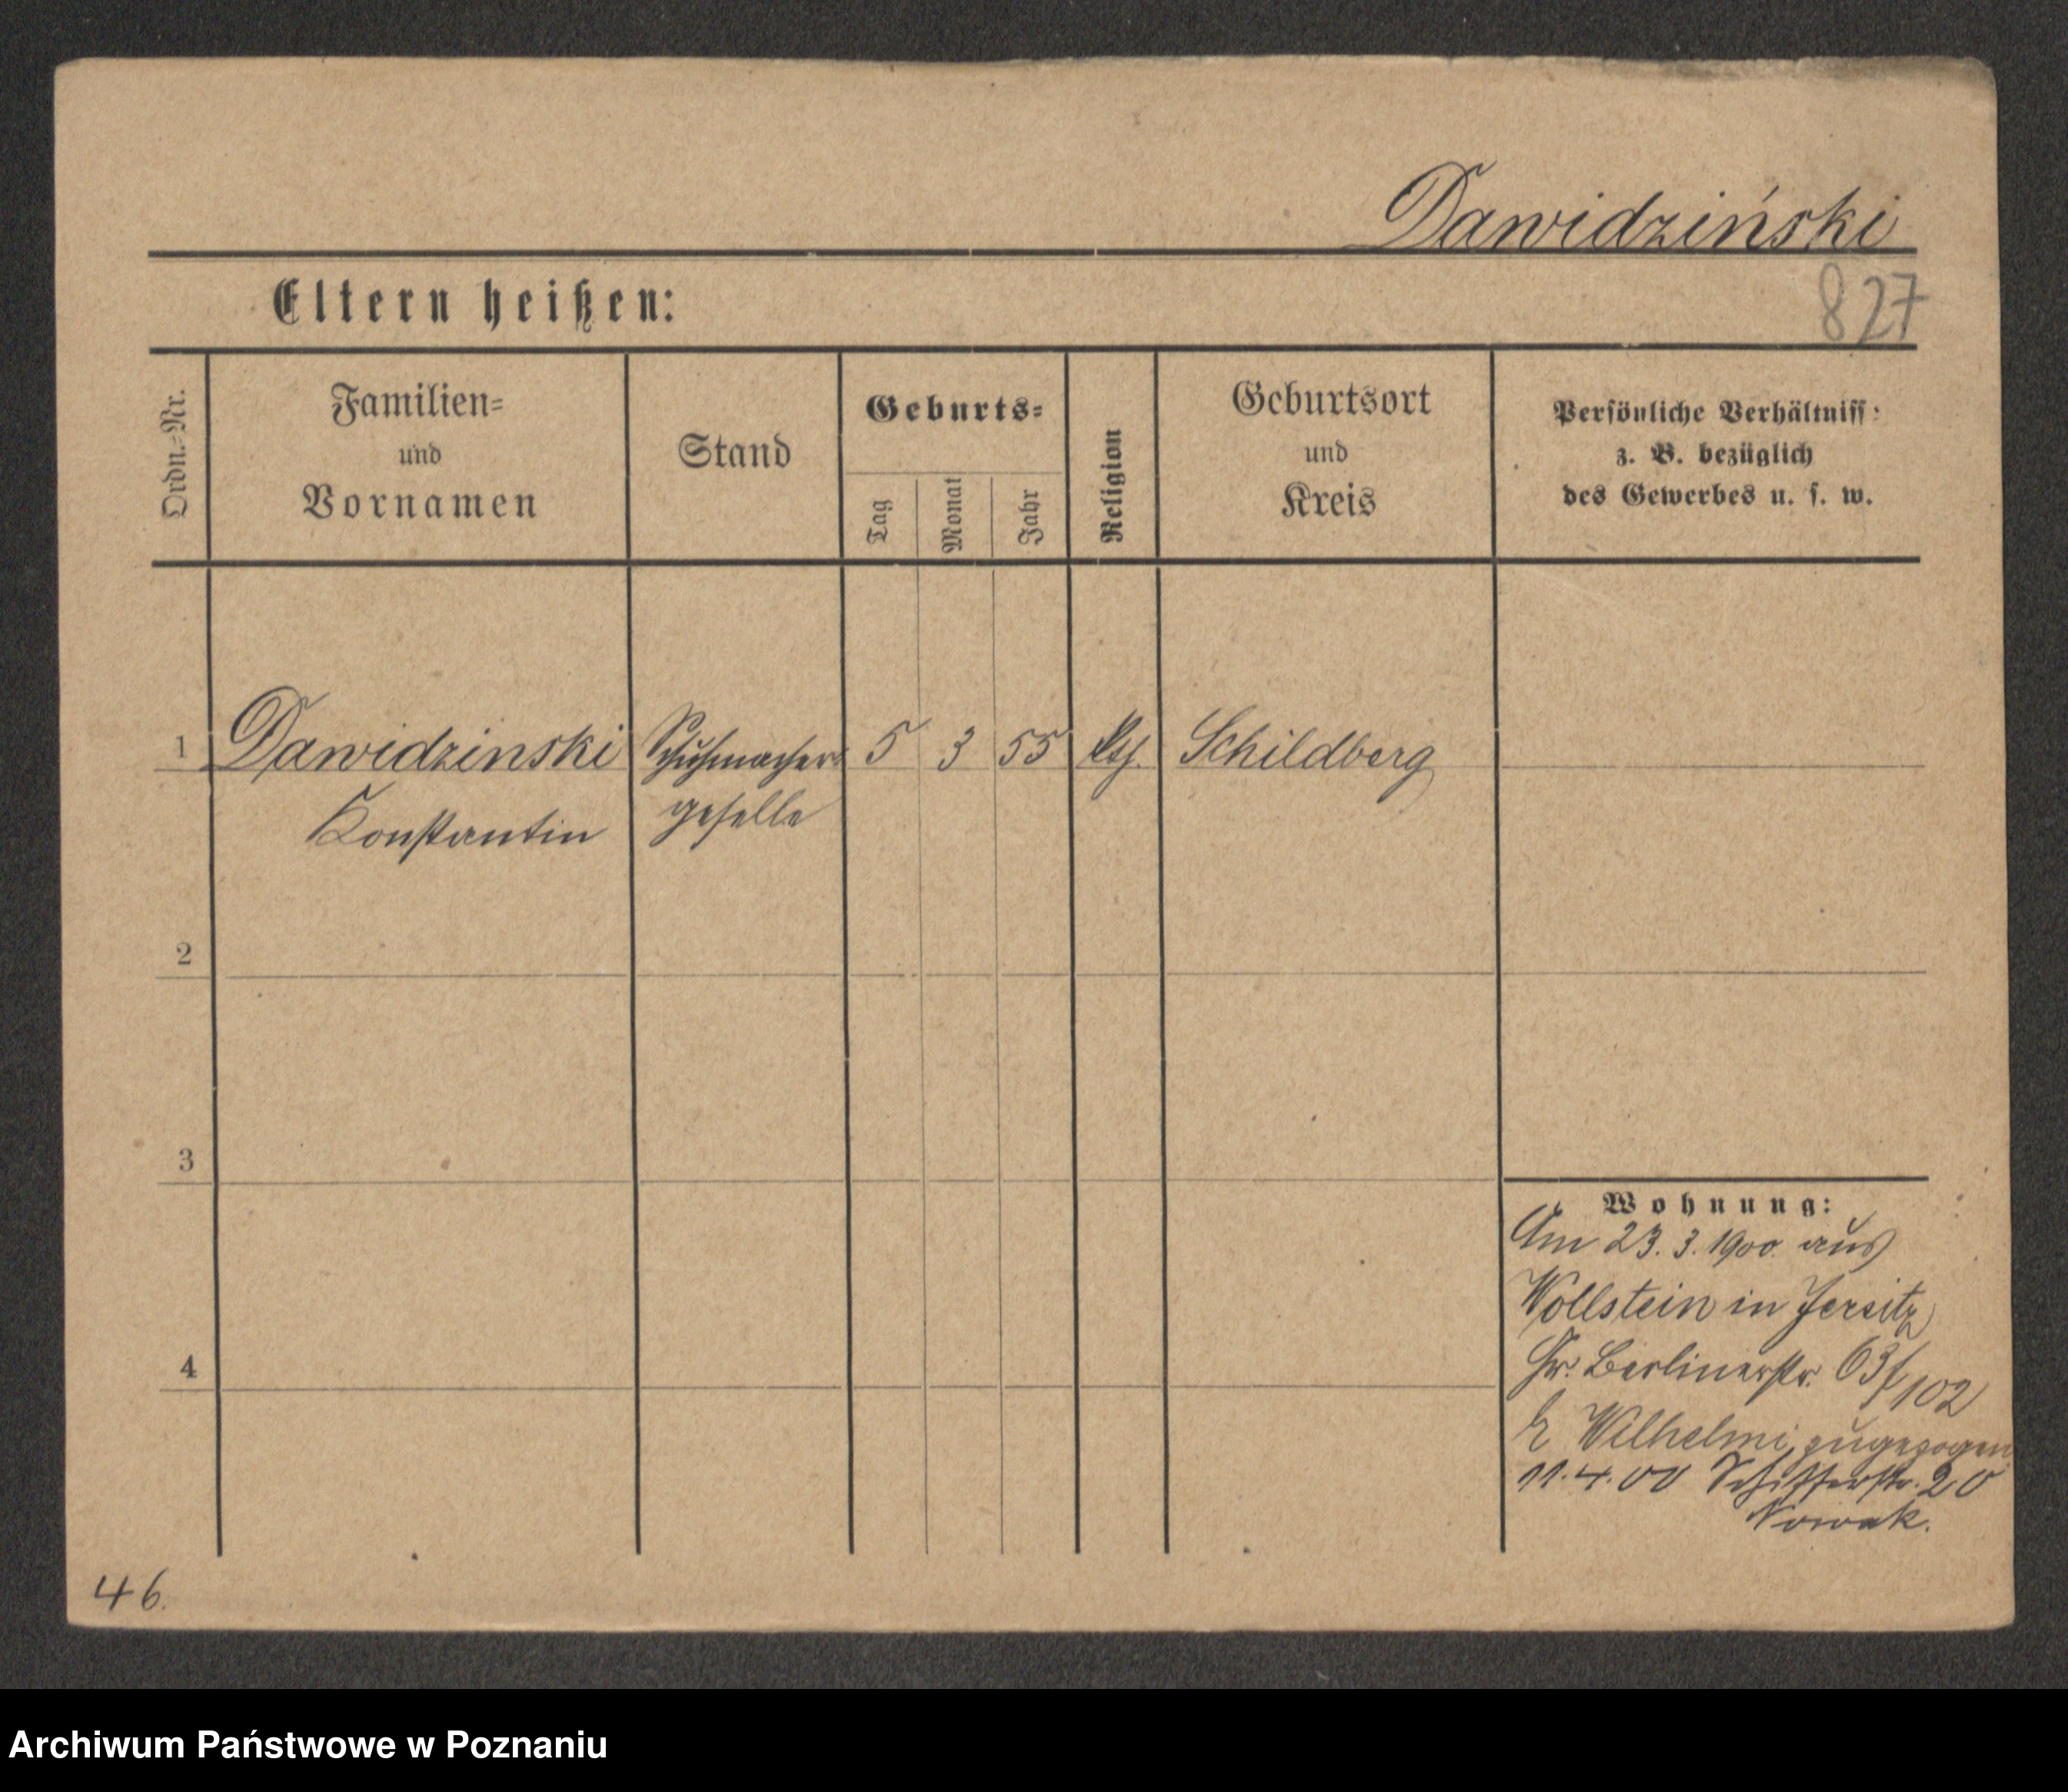 Dawidziński
Eltern heißen:
827
Ordn.-Nr.
Familien-
und
Vornamen
Stand
Geburts-
Tag
Monat
Jahr
Religion
Geburtsort
und
Kreis
Persönliche Verhältniss:
z. B. bezüglich
des Gewerbes u. s. w.
1 Dawidzinski Schuhmacher 5 3 55 kth. Schildberg
Konstantin geselle
2
3
4
Wohnung:
Am 23. 3. 1900. aus
Wollstein in Jersitz
Gr. Berlinerstr. 63/102
Wilhelmi zugezogen
11. 4. 00 Schifferstr. 20
Nowak.
46.
Archiwum Państwowe w Poznaniu